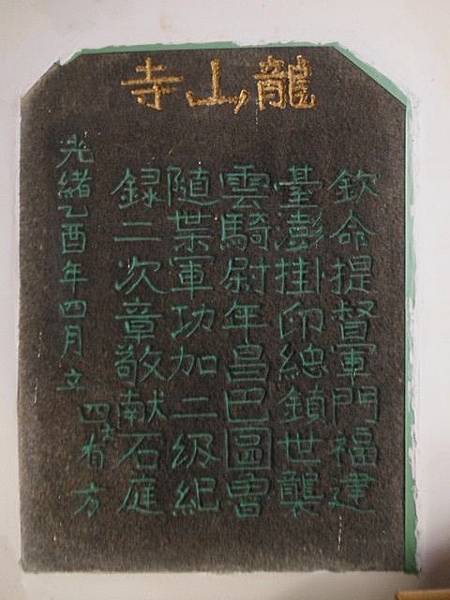 龍山寺
欽命提督軍門福建
臺澎掛印總鎮世襲
雲騎尉年昌巴圖魯
隨枼軍功加二級紀
録二次章敬献石庭
四丈有方
光緒乙酉年四月立